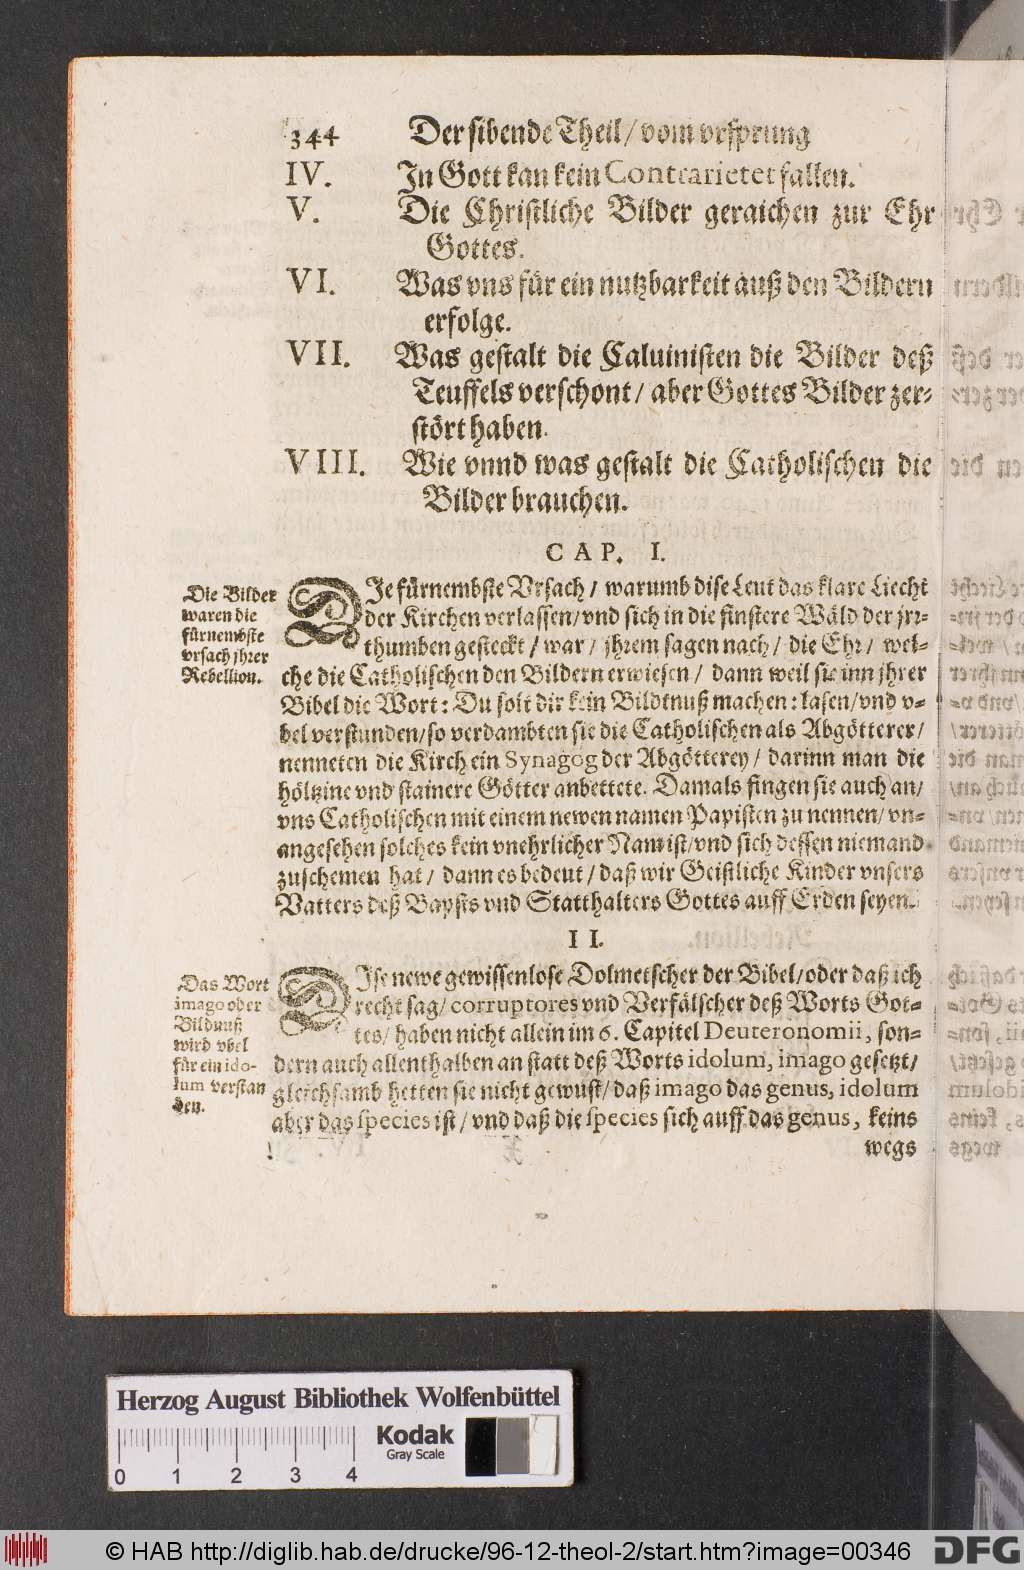 344 Der sibende Theil / vom vrsprung
IV. In Gott kan kein Contrarietet fallen.
V. Die Christliche Bilder geraichen zur Ehr
Gottes.
VI. Was vns für ein nutzbarkeit auß den Bildern
erfolge.
VII. Was gestalt die Caluinisten die Bilder deß
Teuffels verschont / aber Gottes Bilder zer-
stört haben.
VIII. Wie vnnd was gestalt die Catholischen die
Bilder brauchen.
CAP. I.
Die Bilder
waren die
fürnembste
vrsach jhrer
Rebellion.
DIe fürnembste Vrsach / warumb dise Leut das klare Liecht
der Kirchen verlassen / vnd sich in die finstere Wäld der jrr-
thumben gesteckt / war / jhrem sagen nach / die Ehr / wel-
che die Catholischen den Bildern erwiesen / dann weil sie inn jhrer
Bibel die Wort: Du solt dir kein Bildtnuß machen: lasen / vnd v-
bel verstunden / so verdambten sie die Catholischen als Abgötterer /
nenneten die Kirch ein Synagog der Abgötterey / darinn man die
höltzine vnd stainere Götter anbettete. Damals fingen sie auch an /
vns Catholischen mit einem newen namen Papisten zu nennen / vn-
angesehen solches kein vnehrlicher Nam ist / vnd sich dessen niemand
zuschemen hat / dann es bedeut / daß wir Geistliche Kinder vnsers
Vatters deß Bapsts vnd Statthalters Gottes auff Erden seyen.
II.
Das Wort
imago oder
Bildnuß
wird vbel
für ein ido-
lum verstan
den.
DIse newe gewissenlose Dolmetscher der Bibel / oder daß ich
recht sag / corruptores vnd Verfälscher deß Worts Got-
tes / haben nicht allein im 6. Capitel Deuteronomii, son-
dern auch allenthalben an statt deß Worts idolum, imago gesetzt /
gleichsamb hetten sie nicht gewust / daß imago das genus, idolum
aber das species ist / vnd daß die species sich auff das genus, keins
wegs
Herzog August Bibliothek Wolfenbüttel
Kodak
Gray Scale
0 1 2 3 4
© HAB http://diglib.hab.de/drucke/96-12-theol-2/start.htm?image=00346
DFG